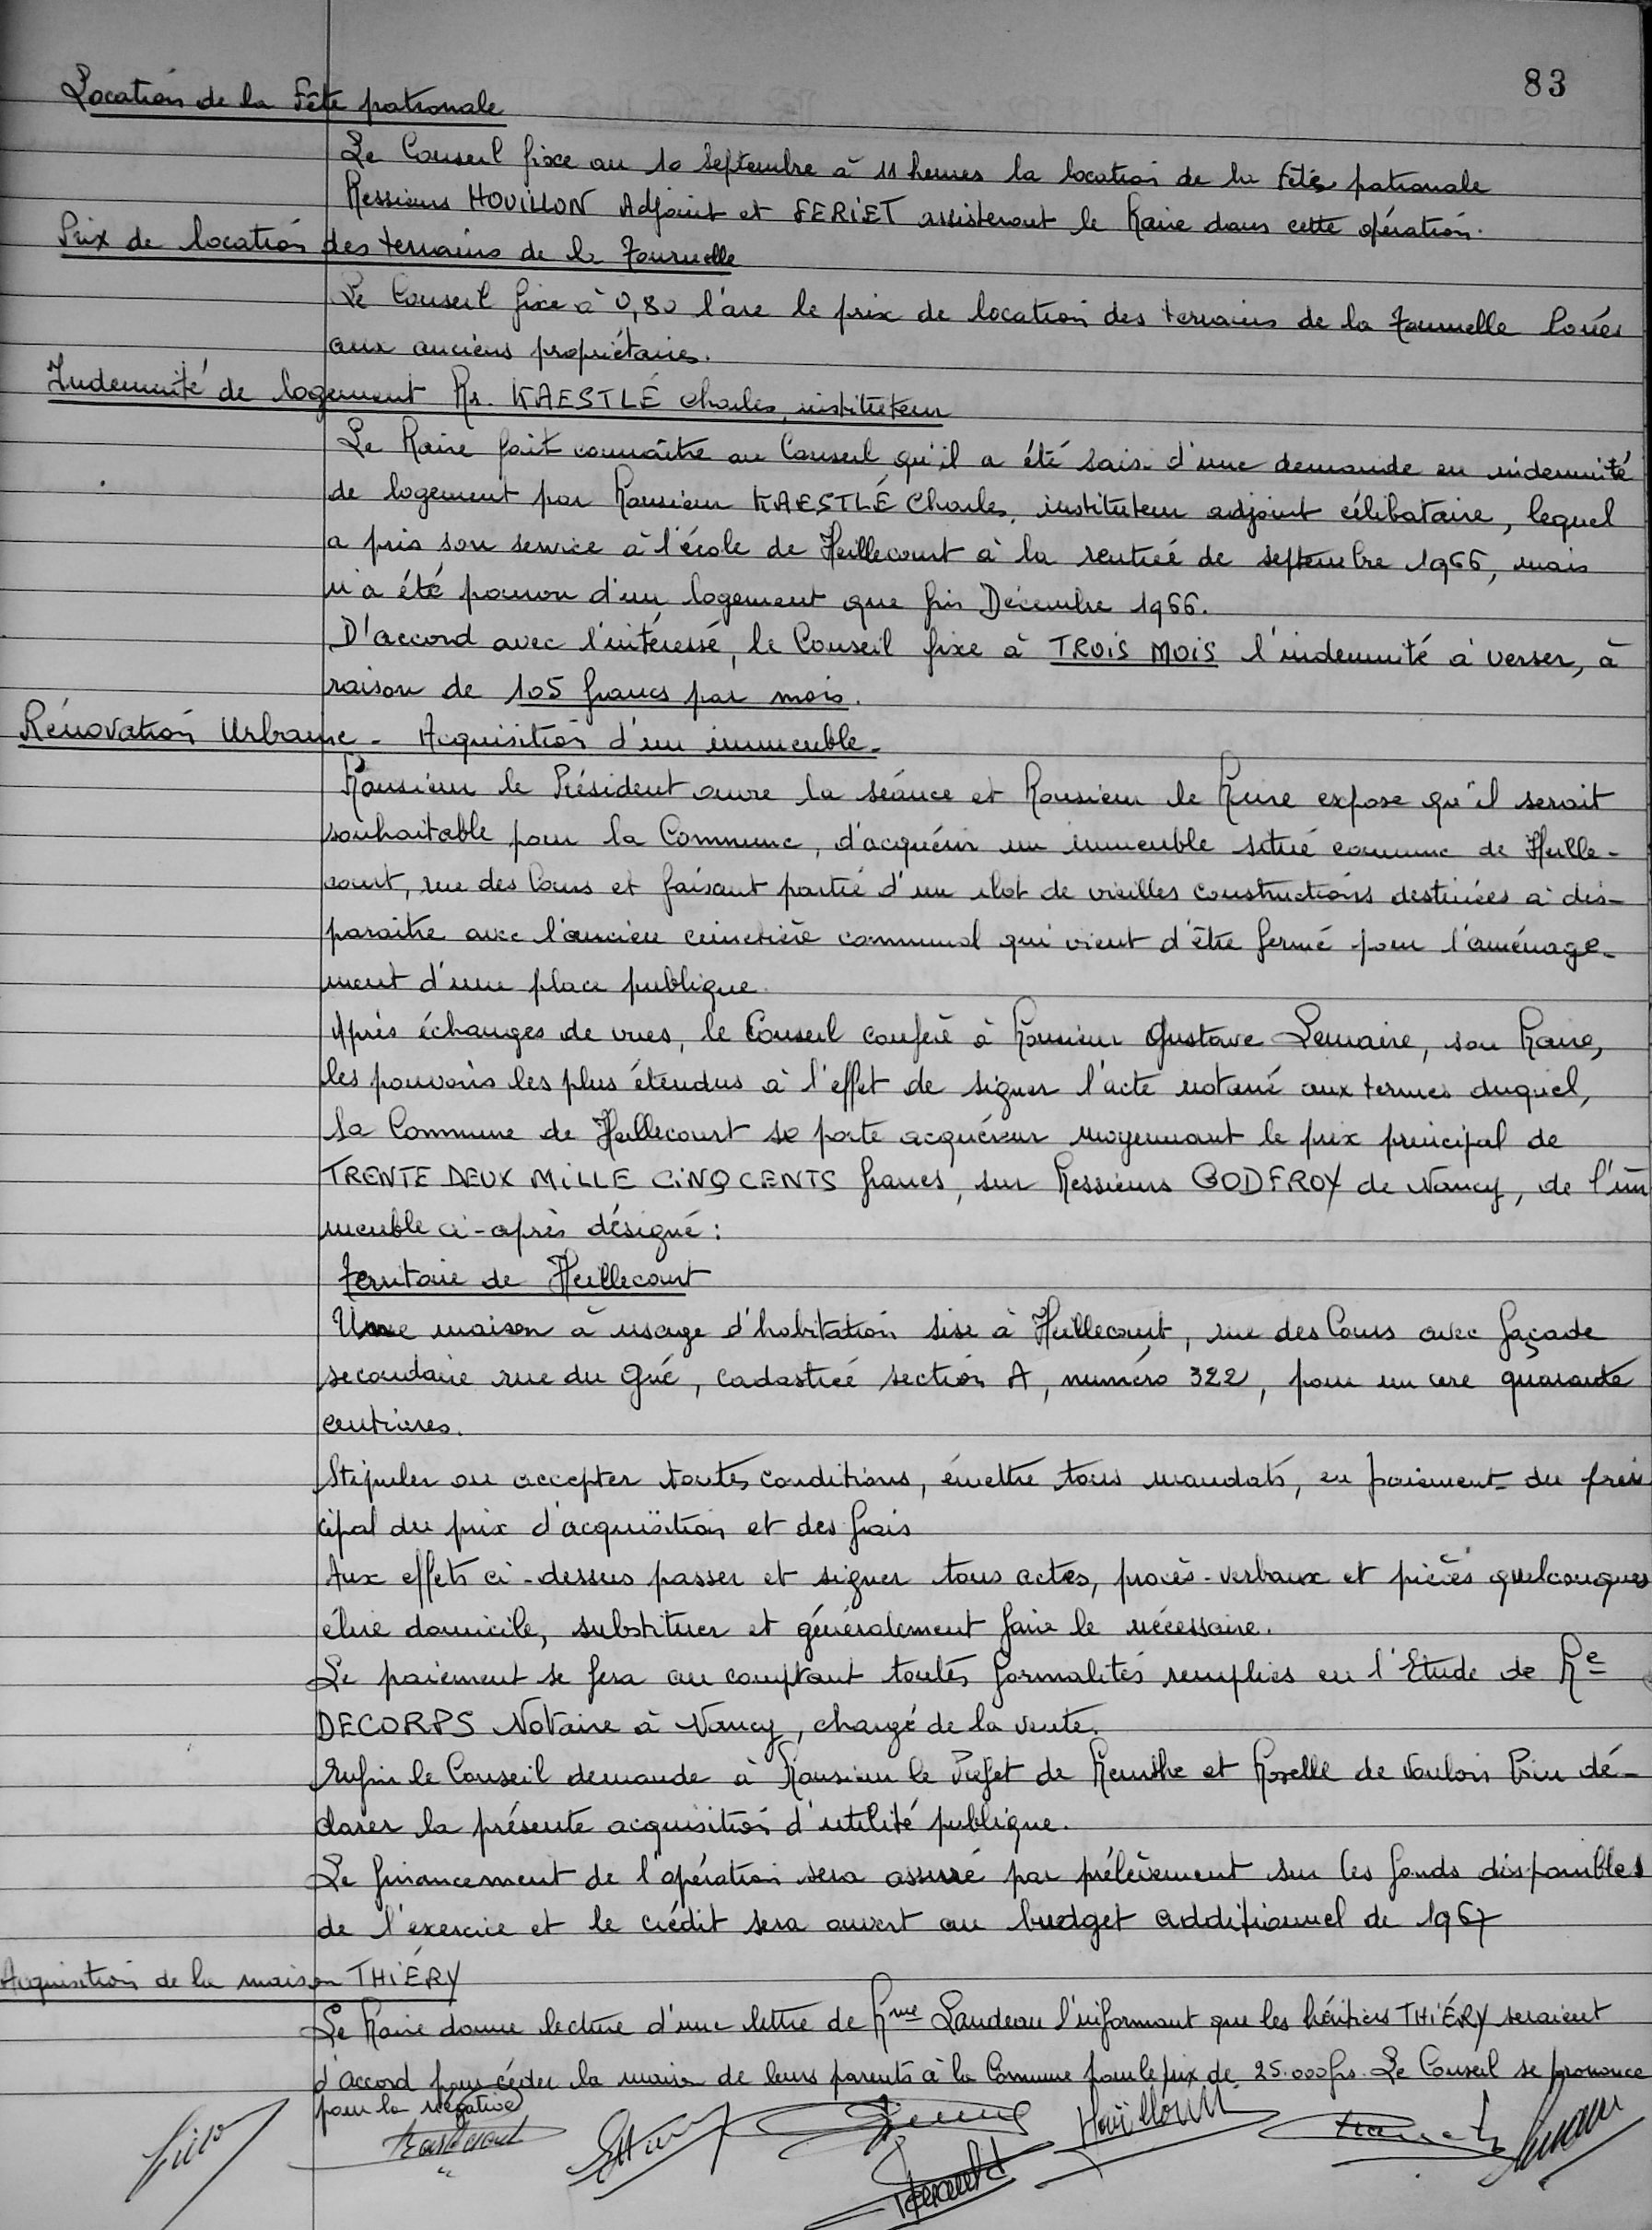 83
Location de la Fête patronale
Le Conseil fixe au 10 Septembre à 11 heures la location de la Fête patronale
Messieurs HOUILLON Adjoint et FERIET assisteront le Maire dans cette opération.
Prix de location des terrains de la Tournelle
Le Conseil fixe à 0,80 l'are le prix de location des terrains de la Tournelle loués
aux anciens propriétaires.
Indemnité de logement Mr. KAESTLÉ Charles, instituteur
Le Maire fait connaître au Conseil qu'il a été saisi d'une demande en indemnité
de logement par Monsieur KAESTLÉ Charles, instituteur adjoint célibataire, lequel
a pris son service à l'école de Heillecourt à la rentrée de septembre 1966, mais
n'a été pourvu d'un logement que fin Décembre 1966.
D'accord avec l'intéressé, le Conseil fixe à TROIS MOIS l'indemnité à verser, à
raison de 105 francs par mois.
Rénovation Urbaine - Acquisition d'un immeuble.
Monsieur le Président ouvre la séance et Monsieur le Maire expose qu'il serait
souhaitable pour la Commune, d'acquérir un immeuble situé commune de Heille-
court, rue des Cours et faisant partie d'un ilot de vieilles constructions destinées à dis-
paraitre avec l'ancien cimetière communal qui vient d'être fermé pour l'aménage-
ment d'une place publique.
Après échanges de vues, le Conseil confère à Monsieur Gustave Lemaire, son Maire,
les pouvoirs les plus étendus à l'effet de signer l'acte notarié aux termes duquel,
la Commune de Heillecourt se porte acquéreur moyennant le prix principal de
TRENTE DEUX MILLE CINQ CENTS francs, sur Messieurs GODFROY de Nancy, de l'im
meuble ci-après désigné :
Territoire de Heillecourt
Une maison à usage d'habitation sise à Heillecourt, rue des Cours avec façade
secondaire rue du Gué, cadastrée section A, numéro 322, pour un are quarante
centiares.
Stipuler ou accepter toutes conditions, émettre tous mandats, en paiement du prin
cipal du prix d'acquisition et des frais
Aux effets ci-dessus passer et signer tous actes, procès-verbaux et pièces quelconques
élire domicile, substituer et généralement faire le nécessaire.
Le paiement se fera au comptant toutes formalités remplies en l'Etude de Me
DECORPS Notaire à Nancy, chargé de la vente.
Enfin le Conseil demande à Monsieur le Préfet de Meurthe et Moselle de vouloir bien dé-
clarer la présente acquisition d'utilité publique.
Le financement de l'opération sera assuré par prélèvement sur les fonds disponibles
de l'exercice et le crédit sera ouvert au budget additionnel de 1967
Acquisition de la maison THIÉRY
Le Maire donne lecture d'une lettre de Mme Landeau l'informant que les héritiers THIÉRY seraient
d'accord pour céder la maison de leurs parents à la Commune pour le prix de 25.000 frs. Le Conseil se prononce
pour la négative
Houillon